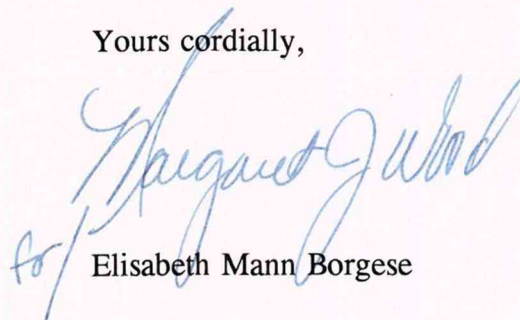 Yours cordially,
Margaret J Wood
for/ Elisabeth Mann Borgese